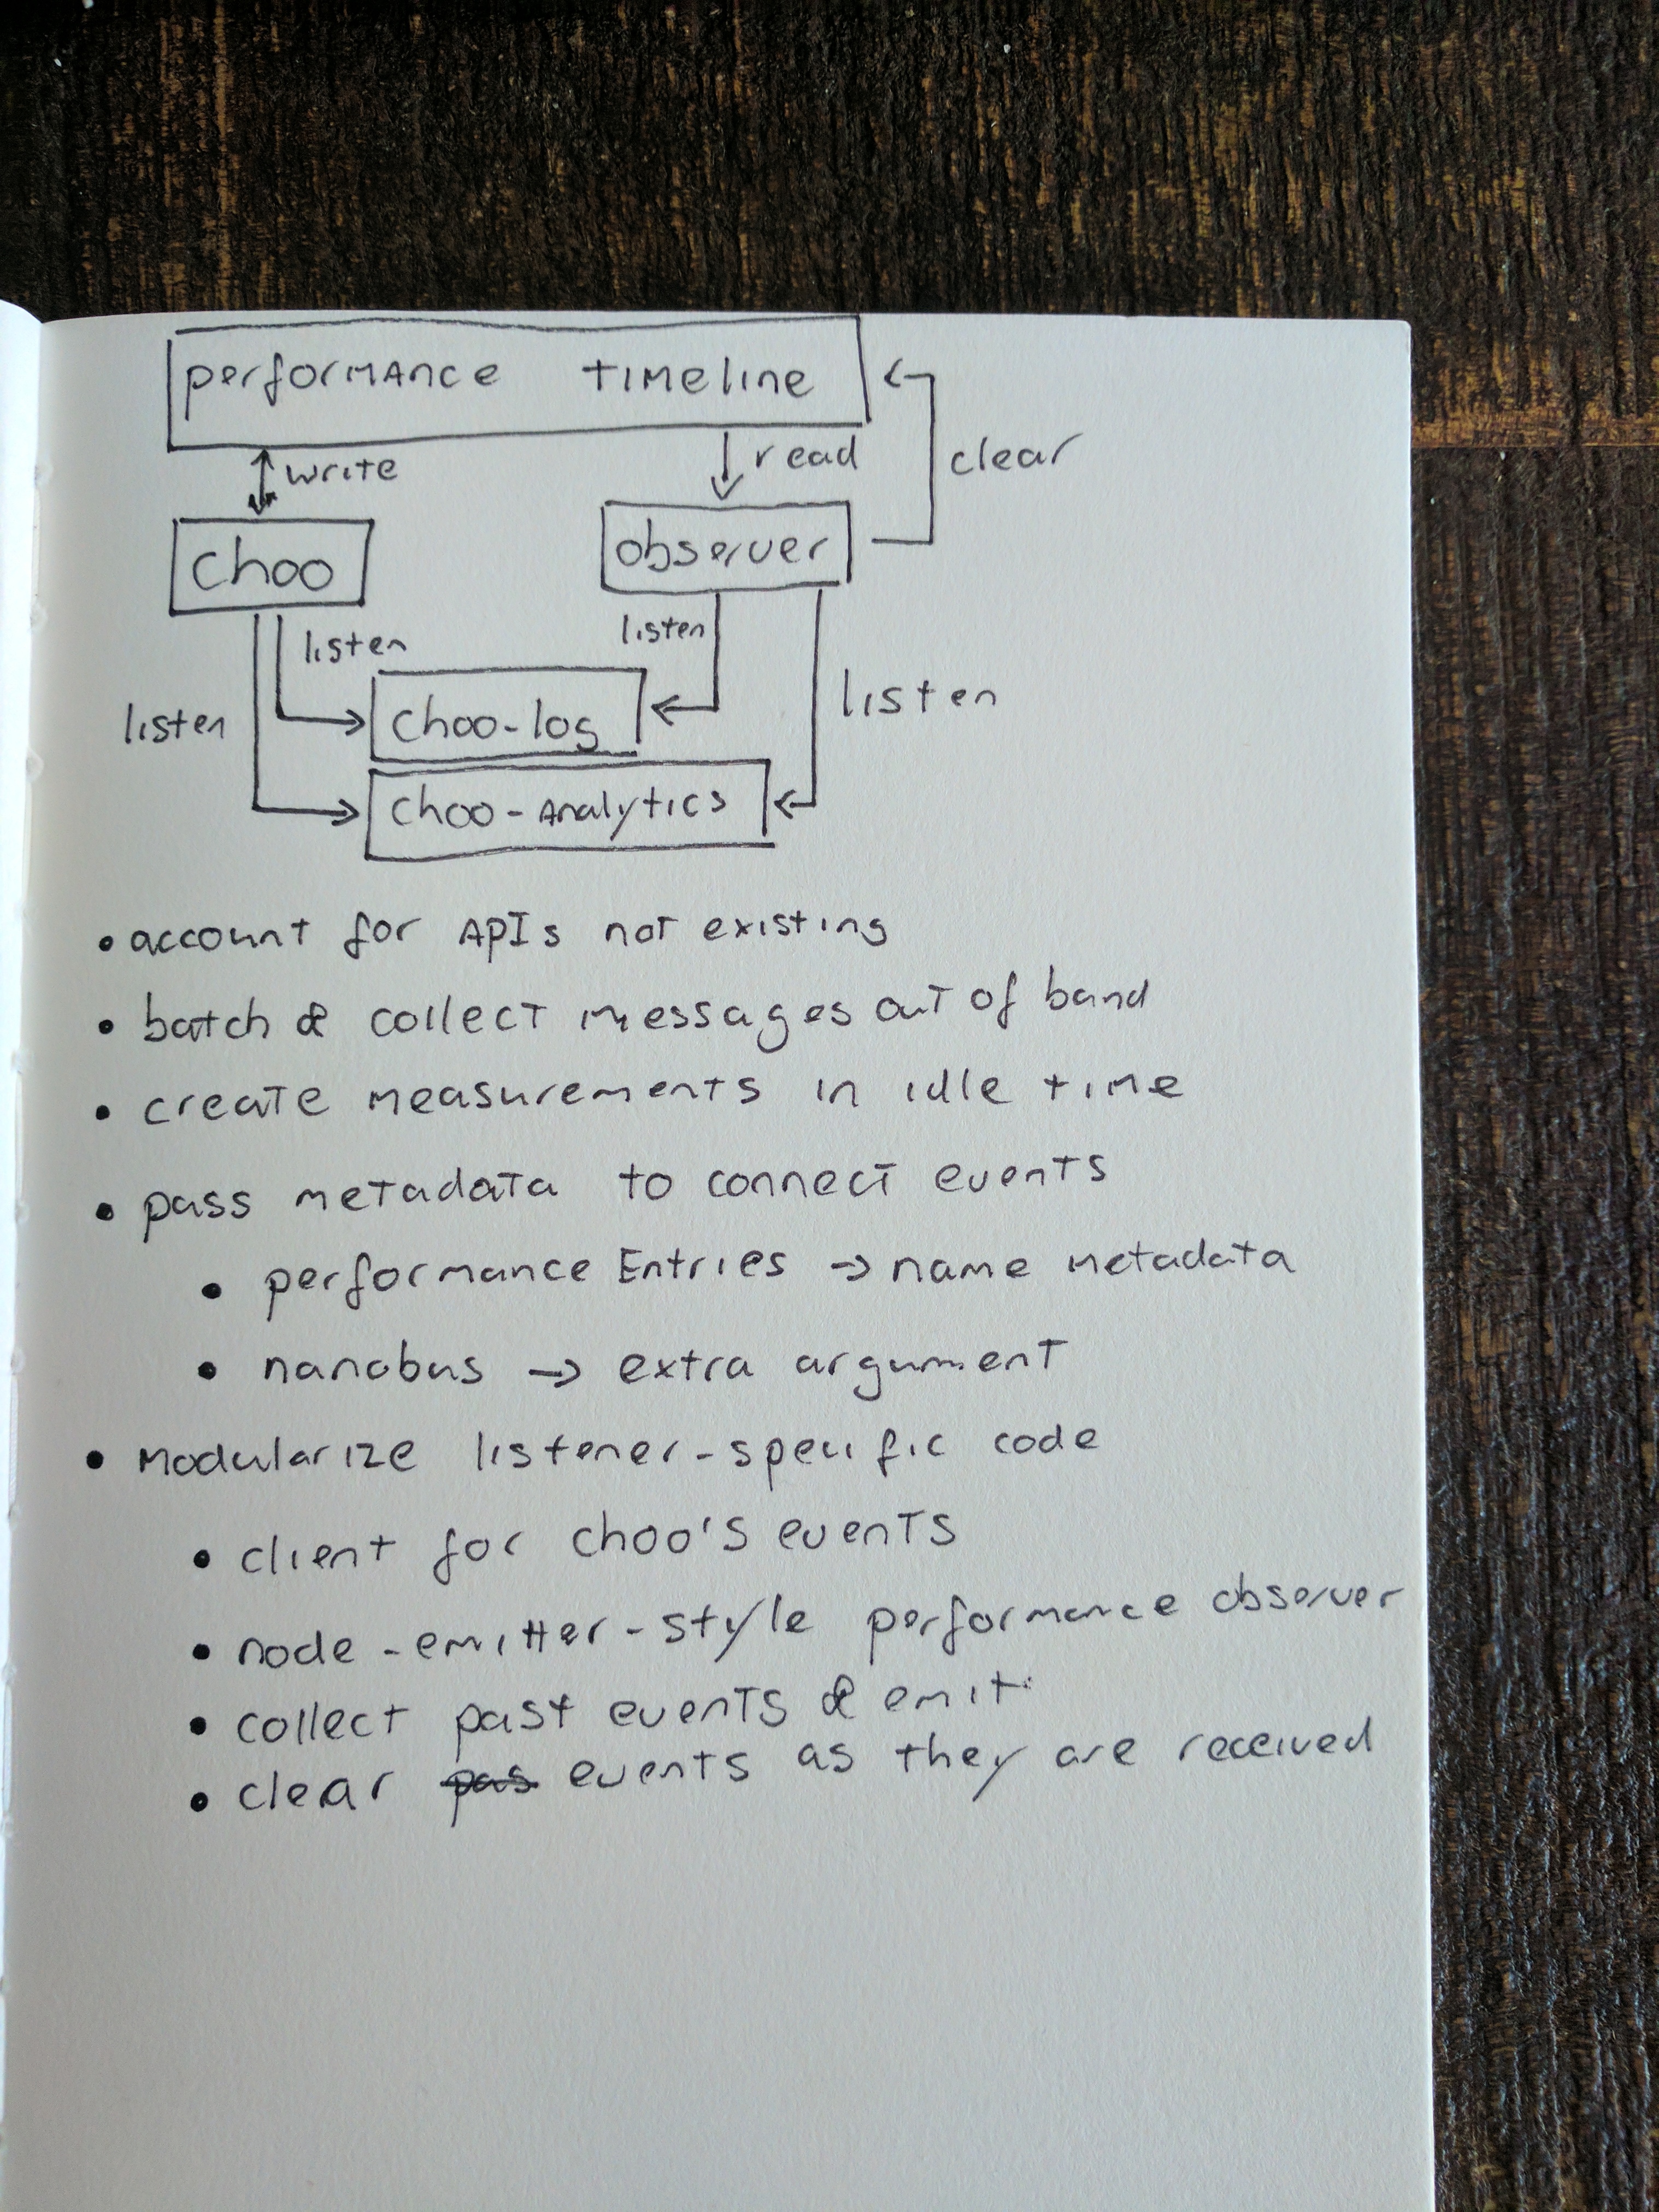 performance timeline
write
read
clear
choo
observer
listen
listen
listen
listen
choo-log
choo-analytics
• account for APIs not existing
• batch & collect messages out of band
• create measurements in idle time
• pass metadata to connect events
• performance Entries → name metadata
• nanobus → extra argument
• modularize listener-specific code
• client for choo's events
• node-emitter-style performance observer
• collect past events & emit
• clear pas events as they are received